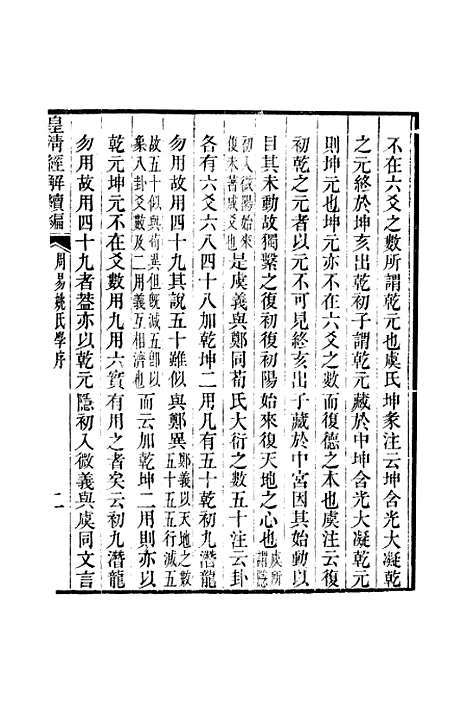 不在六爻之數所謂乾元也虞氏坤彖注云坤含光大凝乾
之元終於坤亥出乾初子謂乾元藏於中坤含光大凝乾元
則坤元也坤元亦不在六爻之數而復德之本也虞注云復
初乾之元者以元不可見終亥出子藏於中宮因其始動以
目其未動故獨繫之復初復初陽始來復天地之心也虞所謂隱
初入微陽始來復未著成爻也是虞義與鄭同荀氏大衍之數五十注云卦
各有六爻六八四十八加乾坤二用凡有五十乾初九潛龍
勿用故用四十九其說五十雖似與鄭異鄭義以天地之數五十五五行減五
故五十似與荀異但既減五卽以象八卦爻數及二用義互相濟也而云加乾坤二用則亦以
乾元坤元不在爻數用九用六實有用之者矣云初九潛龍
勿用故用四十九者蓋亦以乾元隱初入微義與虞同文言
皇清經解續編
周易姚氏學序
二